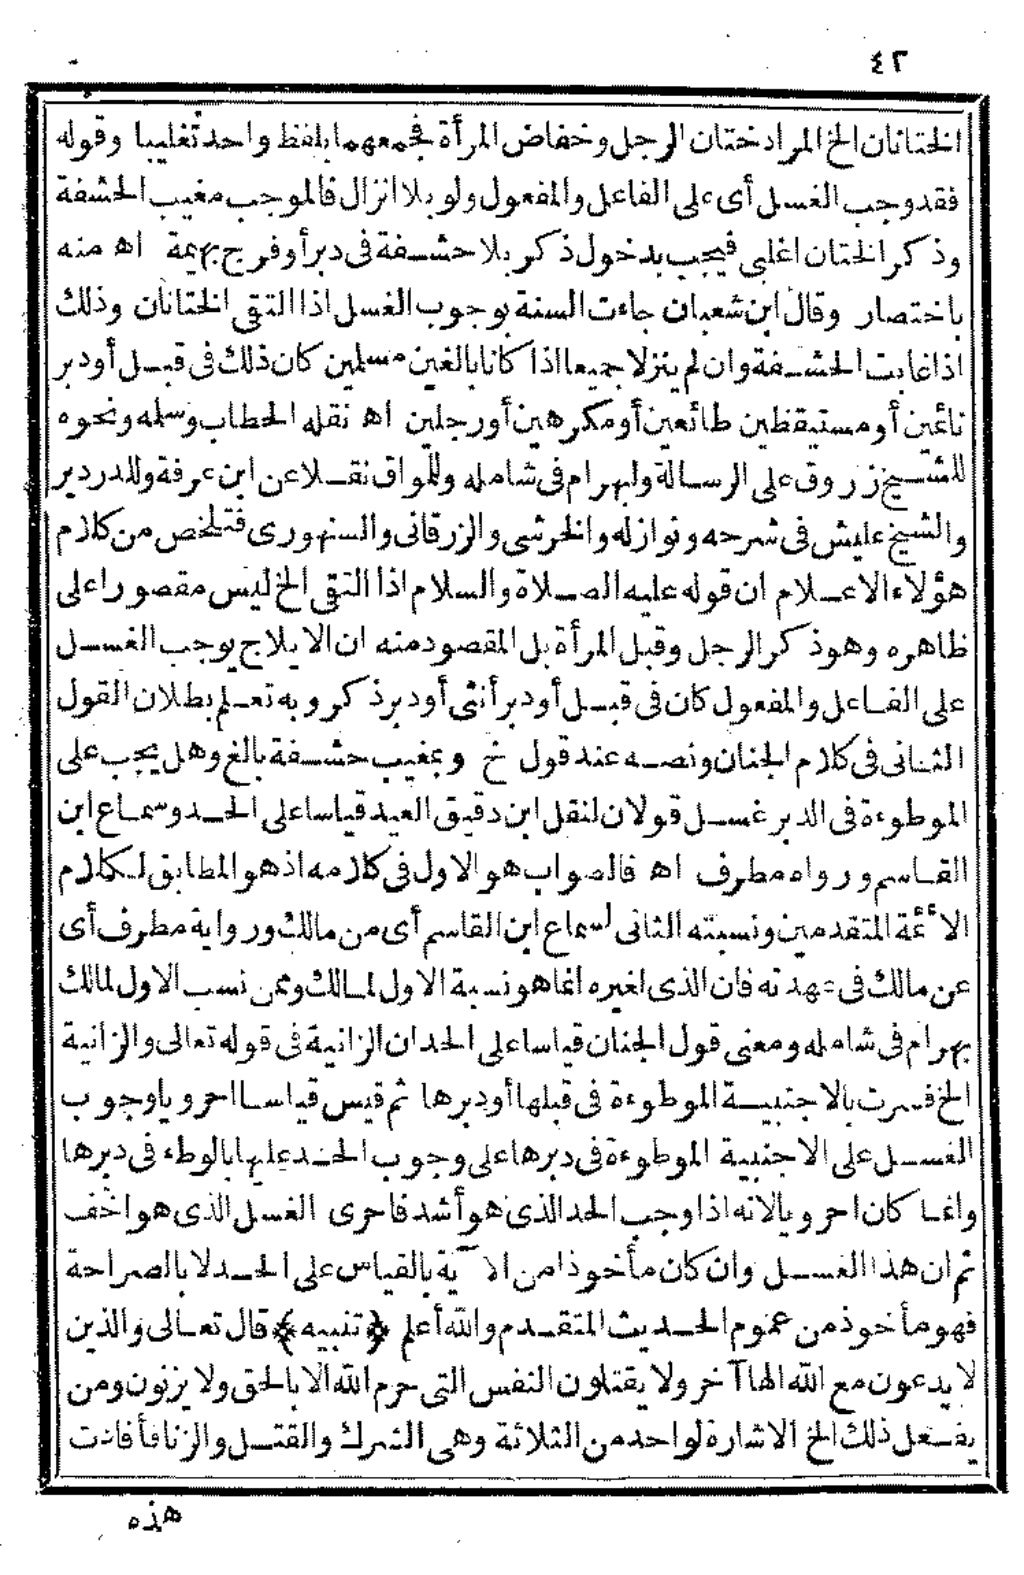 ٤٢
الختانان الخ المراد ختان الرجل وخفاض المرأة فجمعهما بلفظ واحد تغليبا وقوله
فقد وجب الغسل أى على الفاعل والمفعول ولو بلا انزال فالموجب مغيب الحشفة
وذكر الختان اغلبى فيجب بدخول ذكر بلا حشفة فى دبر أو فرج بهيمة اه منه
باختصار وقال ابن شعبان جاءت السنة بوجوب الغسل اذا التقى الختانان وذلك
اذا غابت الحشفة وان لم ينزلا جميعا اذا كانا بالغين مسلمين كان ذلك فى قبل أو دبر
نائمين أو مستيقظين طائعين أو مكرهين أو رجلين اه نقله الحطاب وسلمه ونحوه
للشيخ زروق على الرسالة ولبهرام فى شامله وللمواق نقلا عن ابن عرفة وللدردير
والشيخ عليش فى شرحه ونوازله والخرشى والزرقانى والسنهورى فتلخص من كلام
هؤلاء الاعلام ان قوله عليه الصلاة والسلام اذا التقى الخ ليس مقصورا على
ظاهره وهو ذكر الرجل وقبل المرأة بل المقصود منه ان الايلاج يوجب الغسل
على الفاعل والمفعول كان فى قبل أو دبر أنثى أو دبر ذكر وبه تعلم بطلان القول
الثانى فى كلام الجنان ونصه عند قول خ وبمغيب حشفة بالغ وهل يجب على
الموطوءة فى الدبر غسل قولان لنقل ابن دقيق العيد قياسا على الحد وسماع ابن
القاسم ورواه مطرف اه فالصواب هو الاول فى كلامه اذ هو المطابق لكلام
الائمة المتقدمين ونسبته الثانى لسماع ابن القاسم أى من مالك ورواية مطرف أى
عن مالك فى عهدته فان الذى لغيره انما هو نسبة الاول لمالك وممن نسب الاول لمالك
بهرام فى شامله ومعنى قول الجنان قياسا على الحد ان الزانية فى قوله تعالى والزانية
الخ فسرت بالاجنبية الموطوءة فى قبلها أو دبرها ثم قيس قياسا احرويا وجوب
الغسل على الاجنبية الموطوءة فى دبرها على وجوب الحد عليها بالوطء فى دبرها
وانما كان احرويا لانه اذا وجب الحد الذى هو أشد فاحرى الغسل الذى هو اخف
ثم ان هذا الغسل وان كان مأخوذا من الآية بالقياس على الحد لا بالصراحة
فهو مأخوذ من عموم الحديث المتقدم والله أعلم ﴿تنبيه﴾ قال تعالى والذين
لا يدعون مع الله الها آخر ولا يقتلون النفس التى حرم الله الا بالحق ولا يزنون ومن
يفعل ذلك الخ الاشارة لواحد من الثلاثة وهى الشرك والقتل والزنا فأفادت
هذه